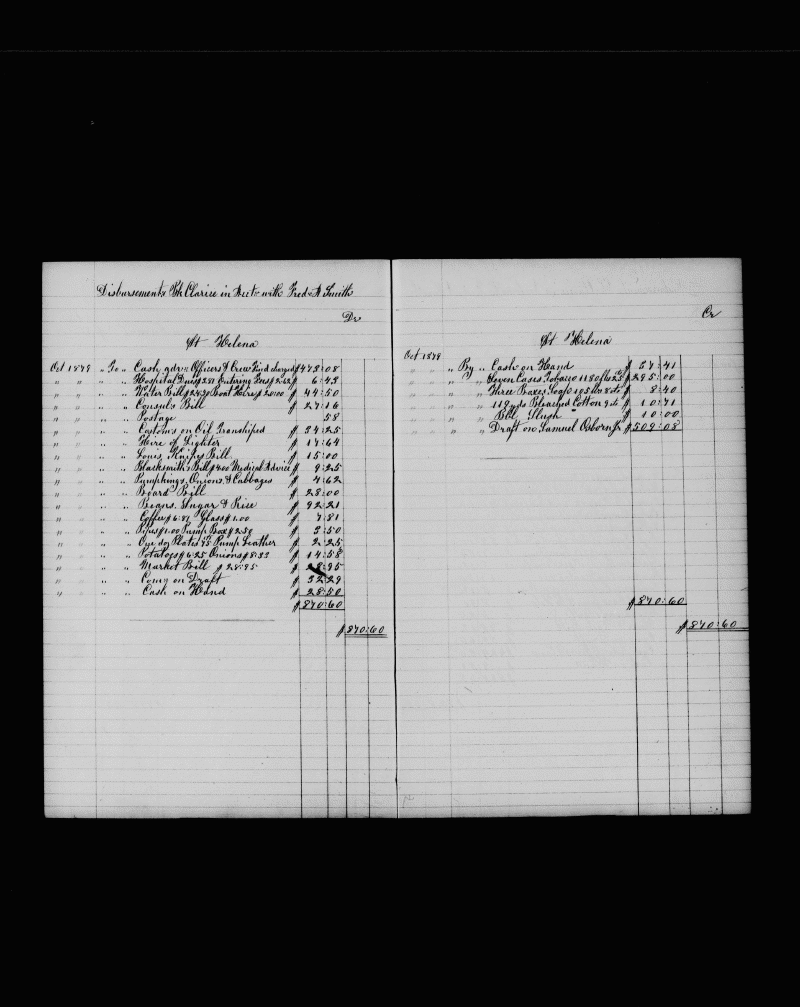 Disbursements Bk Clarice in Acct with Fred A Smith
Dr
St Helena
Oct 1879 " To " Cash adv. Officers & Crew $473:08
" " " " Hospital Dues $3.81 Entering Fees $2.62 $ 6:43
" " " " Water Bill $24.50 Boat Hire $20.00 $ 44:50
" " " " Consuls Bill $ 27:16
" " " " Postage 58
" " " " Customs on Oil Transhiped $ 34:25
" " " " Hire of Lighter $ 17:64
" " " " Louis Knipes Bill $ 15:00
" " " " Blacksmiths Bill $4.00 Medical Advice $ 9:25
" " " " Pumpkings, Onions, & Cabbages $ 4:62
" " " " Board Bill $ 28:00
" " " " Beans, Sugar & Rice $ 92:21
" " " " Coffee $6.81 Glass $1.00 $ 7:81
" " " " Pipes $1.00 Pump Box $2.50 $ 3:50
" " " " One doz Plates Pump Leather $ 2:25
" " " " Potatoes $6.25 Onions $8.33 $ 14:58
" " " " Market Bill $28.95 $ 28:95
" " " " Comy on Draft $ 32:29
" " " " Cash on Hand $ 28:50
$870:60
$870:60
Cr
St Helena
Oct 1879
" By " Cash on Hand $ 37:41
" " " " Seven Cases Tobacco 1180 lbs 25 $295:00
" " " " Three Boxes Soap 105 lbs 8 cts $ 8:40
" " " " 119 yds Bleached Cotton 9 cts $ 10:71
" " " " Bbl Slush " $ 10:00
" " " " Draft on Samuel Osborn Jr $509:08
$870:60
$870:60